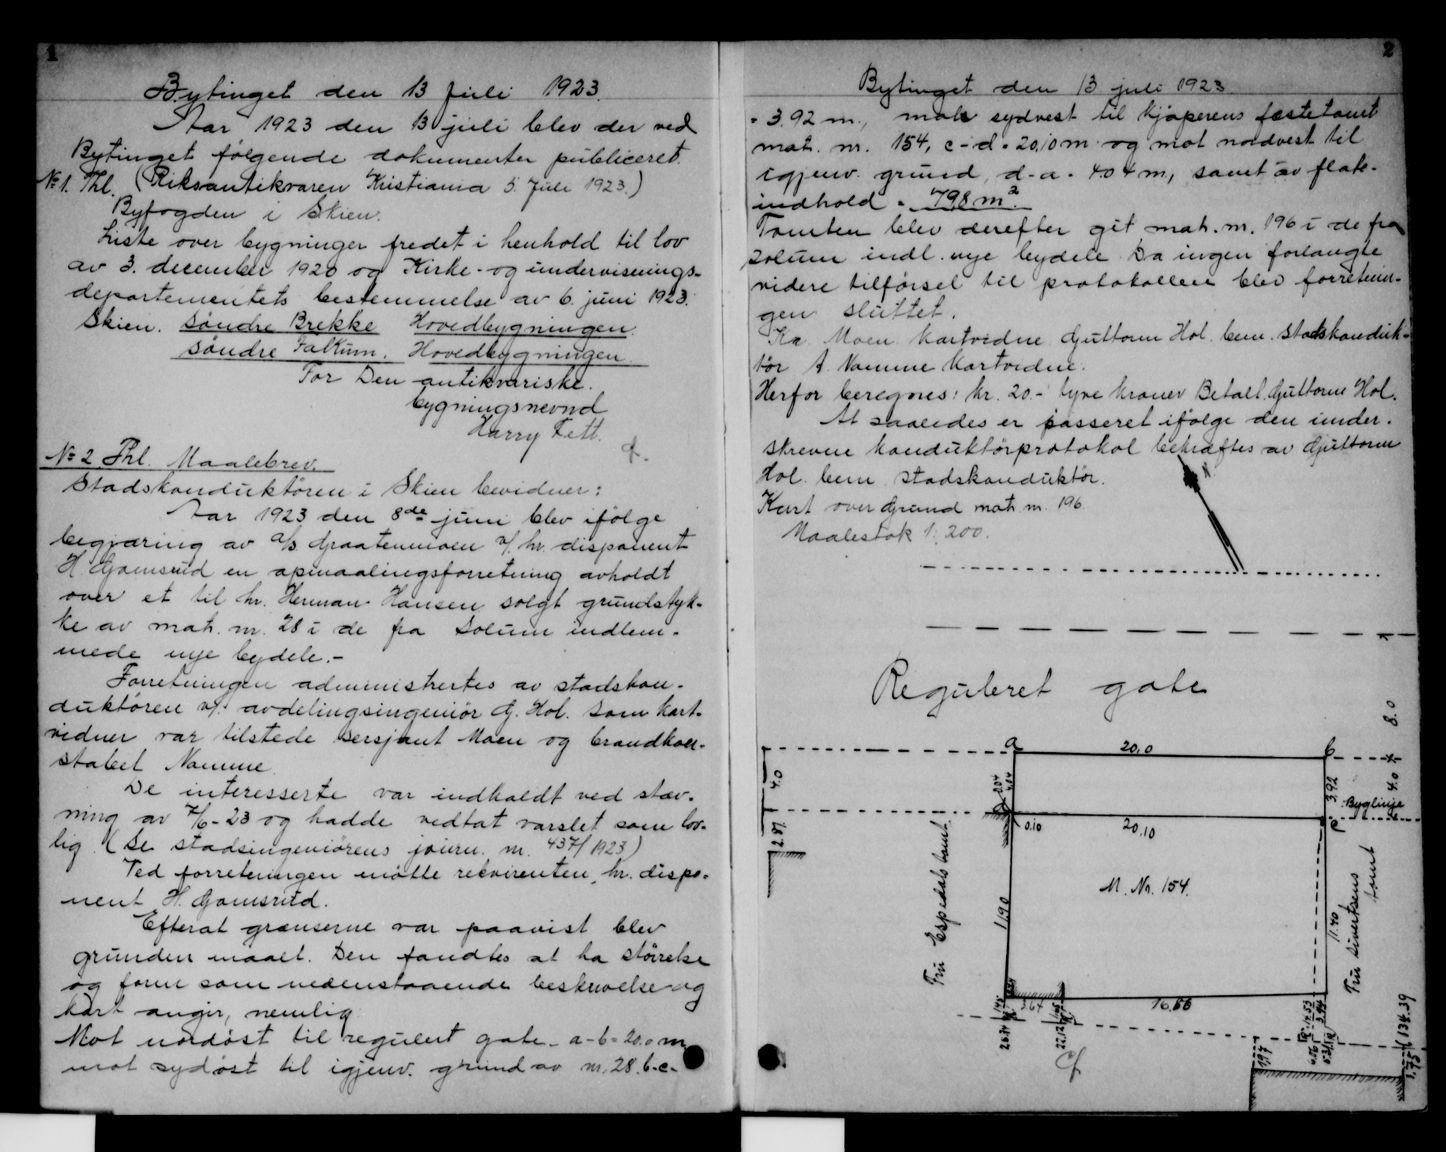 1
Bytinget den 13 juli 1923.
Aar 1923 den 13 juli blev der ved
Bytinget følgende dokumenter publiceret.
No 1. Thl. (Riksantikvaren Kristiania 5 Juli 1923.)
Byfogden i Skien.
Liste over bygninger fredet i henhold til lov
av 3. december 1920 og Kirke- og undervisnings-
departementets bestemmelse av 6. juni 1923.
Skien. Søndre Brekke Hovedbygningen.
Søndre Falkum. Hovedbygningen.
For Den antikvariske.
bygningsnevnd
Harry Fett.
No 2 Thl. Maalebrev.
Stadskonduktøren i Skien bevidner:
Aar 1923 den 8de juni blev ifølge
begjæring av A/S Graatenmoen v/ hr. disponent
H. Gamsrud en opmaalingsforretning avholdt
over et til hr. Herman Hansen solgt grundstyk-
ke av matr. nr. 28 i de fra Solum indlem-
mede nye bydele.-
Forretningen administrertes av stadskon-
duktøren v/ avdelingsingeniør G. Hol. Som kart-
vidner var tilstede sersjant Moen og brandkon-
stabel Namme.
De interesserte var indkaldt ved stev-
ning av 7/6-23 og hadde vedtat varslet som lov-
lig. (Se stadsingeniørens journ. nr. 437/1923)
Ved forretningen møtte rekvirenten, hr. dispo-
nent H. Gamsrud.
Efterat grænserne var paavist blev
grunden maalt. Den fandtes at ha størrelse
og form som nedenstaaende beskrivelse og
kart angir, nemlig:
Mot nordøst til regulert gate a-b=20.0 m,
mot sydøst til igjenv. grund av nr. 28. b-c-
2
Bytinget den 13 juli 1923
= 3.92 m., mot sydvest til kjøperens festetomt
matr. nr. 154, c-d = 20,10 m og mot nordvest til
igjenv. grund, d-a = 4.04 m, samt av flate-
indhold = 79,8 m².
Tomten blev derefter git matr. nr. 196 i de fra
Solum indl. nye bydele. Da ingen forlangte
videre tilførsel til protokollen blev forretnin-
gen sluttet.
Kr. Moen kartvidne Guttorm Hol. bem. stadskonduk-
tør A. Namme kartvidne.
Herfor beregnes: kr. 20.- tyve kroner Betalt. Guttorm Hol.
At saaledes er passeret ifølge den under-
skrevne konduktørprotokol bekræftes av Guttorm
Hol. bem. stadskonduktør.
Kart over Grund matr. nr. 196
Maalestok 1:200.
Reguleret gate
8.0
a 20,0 b
4.0
4.04
3.92
4.0
Byglinje
0.10 20.10 c
2.87
M. Nr. 154.
Fru Espesets tomt
11.90
11.40
Fru Sivertsens
tomt
3.64 16.55
26.34
22.12
1.97
1.75
134.39